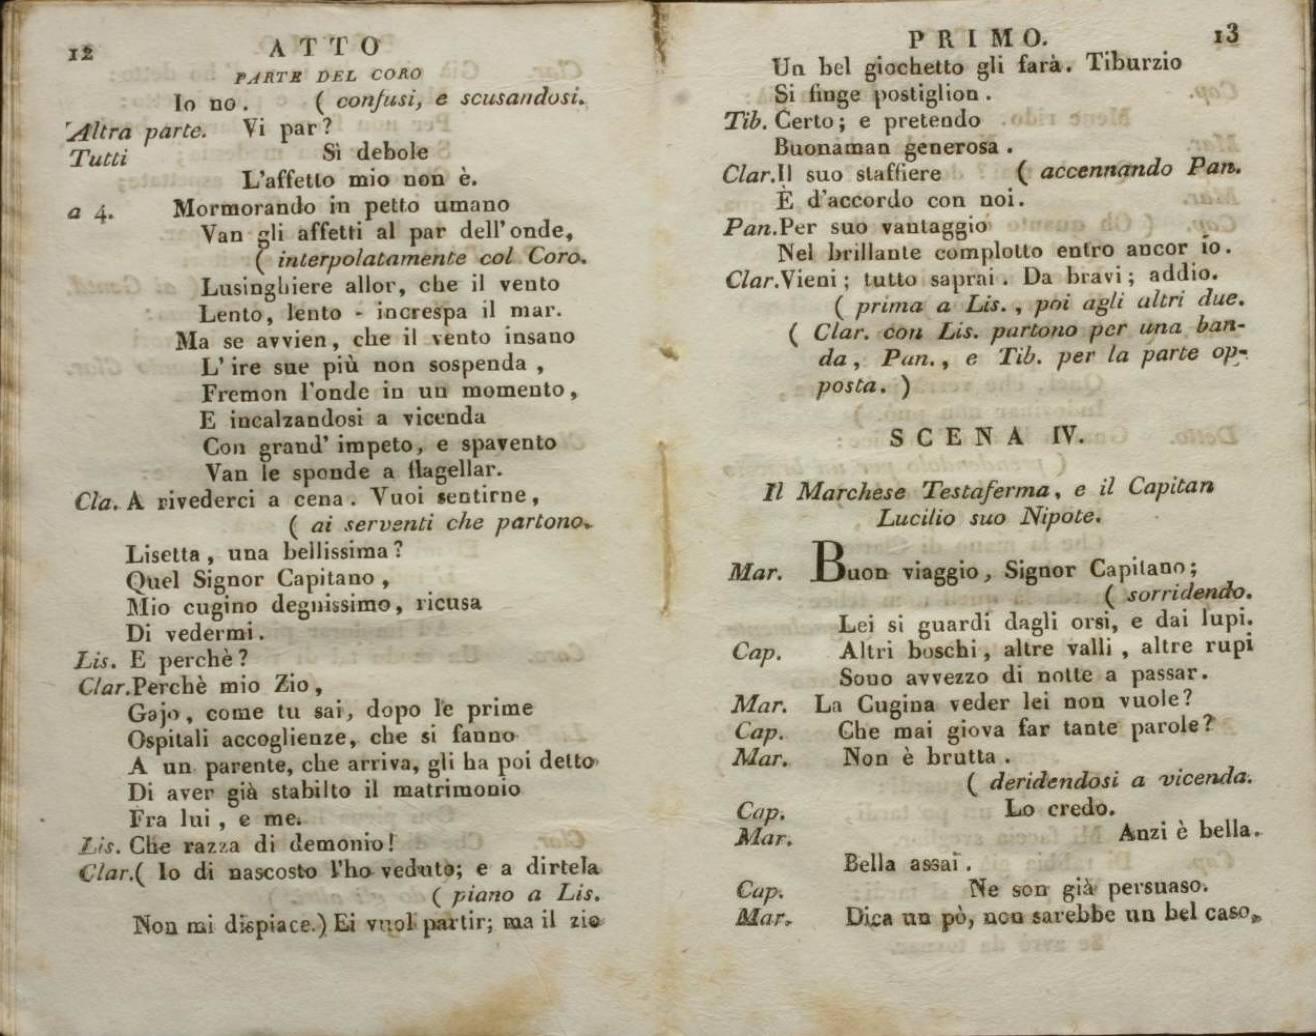 12
ATTO
PARTE DEL CORO
Io no. ( confusi, e scusandosi.
Altra parte. Vi par?
Tutti Sì debole
L'affetto mio non è.
a 4. Mormorando in petto umano
Van gli affetti al par dell'onde,
( interpolatamente col Coro.
Lusinghiere allor, che il vento
Lento, lento - increspa il mar.
Ma se avvien, che il vento insano
L'ire sue più non sospenda,
Fremon l'onde in un momento,
E incalzandosi a vicenda
Con grand' impeto, e spavento
Van le sponde a flagellar.
Cla. A rivederci a cena. Vuoi sentirne,
( ai serventi che partono.
Lisetta, una bellissima?
Quel Signor Capitano,
Mio cugino degnissimo, ricusa
Di vedermi.
Lis. E perchè?
Clar. Perchè mio Zio,
Gajo, come tu sai, dopo le prime
Ospitali accoglienze, che si fanno
A un parente, che arriva, gli ha poi detto
Di aver già stabilto il matrimonio
Fra lui, e me.
Lis. Che razza di demonio!
Clar. ( Io di nascosto l'ho veduto; e a dirtela
( piano a Lis.
Non mi dispiace.) Ei vuol partir; ma il zio
PRIMO.
13
Un bel giochetto gli farà. Tiburzio
Si finge postiglion.
Tib. Certo; e pretendo
Buonaman generosa.
Clar. Il suo staffiere ( accennando Pan.
È d'accordo con noi.
Pan. Per suo vantaggio
Nel brillante complotto entro ancor io.
Clar. Vieni; tutto saprai. Da bravi; addio.
( prima a Lis., poi agli altri due.
( Clar. con Lis. partono per una ban-
da, Pan., e Tib. per la parte op-
posta. )
SCENA IV.
Il Marchese Testaferma, e il Capitan
Lucilio suo Nipote.
Mar. Buon viaggio, Signor Capitano;
( sorridendo.
Lei si guardi dagli orsi, e dai lupi.
Cap. Altri boschi, altre valli, altre rupi
Sono avvezzo di notte a passar.
Mar. La Cugina veder lei non vuole?
Cap. Che mai giova far tante parole?
Mar. Non è brutta.
( deridendosi a vicenda.
Cap. Lo credo.
Mar. Anzi è bella.
Bella assai.
Cap. Ne son già persuaso.
Mar. Dica un pò, non sarebbe un bel caso,